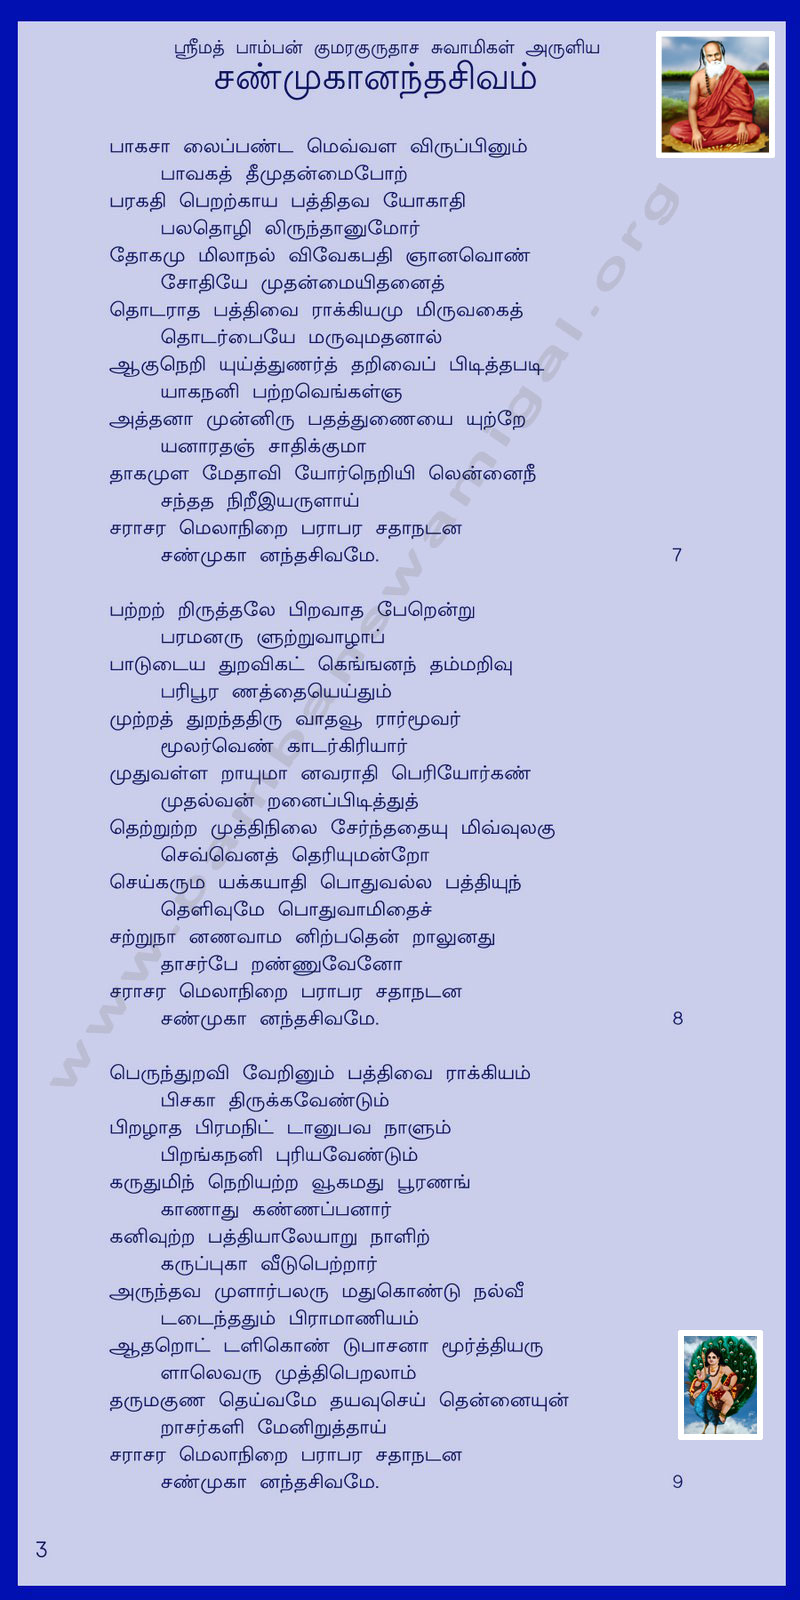 ஸ்ரீமத் பாம்பன் குமரகுருதாச சுவாமிகள் அருளிய
சண்முகானந்தசிவம்
பாகசா லைப்பண்ட மெவ்வள விருப்பினும்
பாவகத் தீமுதன்மைபோற்
பரகதி பெறற்காய பத்திதவ யோகாதி
பலதொழி லிருந்தானுமோர்
தோகமு மிலாநல் விவேகபதி ஞானவொண்
சோதியே முதன்மையிதனைத்
தொடராத பத்திவை ராக்கியமு மிருவகைத்
தொடர்பையே மருவுமதனால்
ஆகுநெறி யுய்த்துணர்த் தறிவைப் பிடித்தபடி
யாகநனி பற்றவெங்கள்ஞ
அத்தனா முன்னிரு பதத்துணையை யுற்றே
யனாரதஞ் சாதிக்குமா
தாகமுள மேதாவி யோர்நெறியி லென்னைநீ
சந்தத நிறீஇயருளாய்
சராசர மெலாநிறை பராபர சதாநடன
சண்முகா னந்தசிவமே. 7
பற்றற் றிருத்தலே பிறவாத பேறென்று
பரமனரு ளுற்றுவாழாப்
பாடுடைய துறவிகட் கெங்ஙனந் தம்மறிவு
பரிபூர ணத்தையெய்தும்
முற்றத் துறந்ததிரு வாதவூ ரார்மூவர்
மூலர்வெண் காடர்கிரியார்
முதுவள்ள றாயுமா னவராதி பெரியோர்கண்
முதல்வன் றனைப்பிடித்துத்
தெற்றுற்ற முத்திநிலை சேர்ந்ததையு மிவ்வுலகு
செவ்வெனத் தெரியுமன்றோ
செய்கரும யக்கயாதி பொதுவல்ல பத்தியுந்
தெளிவுமே பொதுவாமிதைச்
சற்றுநா னணவாம னிற்பதென் றாலுனது
தாசர்பே றண்ணுவேனோ
சராசர மெலாநிறை பராபர சதாநடன
சண்முகா னந்தசிவமே. 8
பெருந்துறவி வேறினும் பத்திவை ராக்கியம்
பிசகா திருக்கவேண்டும்
பிறழாத பிரமநிட் டானுபவ நாளும்
பிறங்கநனி புரியவேண்டும்
கருதுமிந் நெறியற்ற வூகமது பூரணங்
காணாது கண்ணப்பனார்
கனிவுற்ற பத்தியாலேயாறு நாளிற்
கருப்புகா வீடுபெற்றார்
அருந்தவ முளார்பலரு மதுகொண்டு நல்வீ
டடைந்ததும் பிராமாணியம்
ஆதறொட் டளிகொண் டுபாசனா மூர்த்தியரு
ளாலெவரு முத்திபெறலாம்
தருமகுண தெய்வமே தயவுசெய் தென்னையுன்
றாசர்களி மேனிறுத்தாய்
சராசர மெலாநிறை பராபர சதாநடன
சண்முகா னந்தசிவமே. 9
3
www.pambanswamigal.org